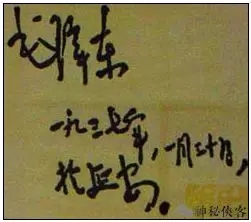 毛泽东
一九三七年，一月三十日，
於延安。
神秘侠客